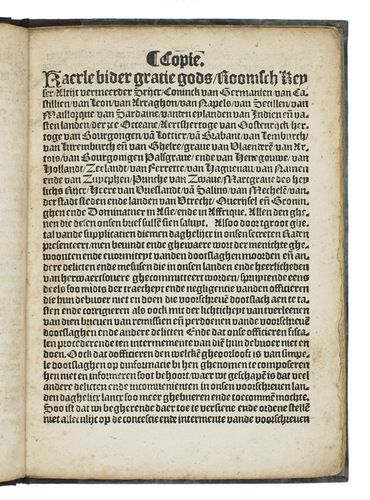 ¶Copie.
Kaerle bider gratie gods/Roomsch Key
ser/Altijt vermeerder Srijcr/Coninck van Germanien/van Ca-
stillien/van Leon/van Arraghon/van Napels/van Secillen/van
Maillorque/van Sardaine/vanten eylanden van Indien en va-
sten landen/der zee Oceane/Aertshertoge van Oostenrijck her-
toge van Bourgongen/vā Lottrijc/vā Grabant/van Lemburch/
van Luxemburch en van Ghelre/graue van Vlaenderē van Ar-
tois/van Bourgonigen Palsgraue/ende van Henegouwe/van
Hollandt/Zeelandt/van Ferrette/van Haguenau van Namen
ende van Zuytphen/Prinche van Zwaue/Marcgraue des hey
lichs Rijcx/Heere van Vrieslandt/vā Salins/van Mechelē/van-
der stadt steden ende landen van Utrecht/Ouerijsel en Gronin-
ghen ende Dominatuer in Asie/ende in Affrique. Allen den ghe-
nen die desen onsen brief sullē sien saluyt. Alsoo door t groot ghe-
tal van de supplicatien diemen daghelijcx in onsen secreten Raet
presenteert/men beuindt ende ghewaere wort der menichte ghe-
woonten ende enormiteyt vanden dootslaghen moorden en an-
dere delicten ende mesusen die in onsen landen ende heerlicheden
van herwaertsouere ghecommitteert worden/spruytende eens
deels soo midts der traecheyt ende negligencie vanden officieren
die hun debuoer niet en doen die voorschreuē dootslach aen te ta-
sten ende corrigieren als oock mit der lichticheyt van verleenen
van dien brieuen van remissien en perdoenen vande voorschreuē
dootslaghen ende andere delicten Ende dat onse officieren fisca-
len procederende ten intermemente van diē hun debuoer niet en
doen. Oock dat dofficieren den welckē gheoorlooft is van simpe-
le dootslaghen op dinformatie bi hen ghenomen te composeren
hen niet en informeren soot behoort/waer wt geschapē is dat veel
andere delicten ende inconuenienten in onsen voorschreuen lan-
den daghelijcx lancx soo meer ghebueren ende toecommē mochte.
Soo ist dat wi begherende daer toe te versiene ende ordene stellē
niet alleenlijct op de concessie ende intermente vande voorschreuen